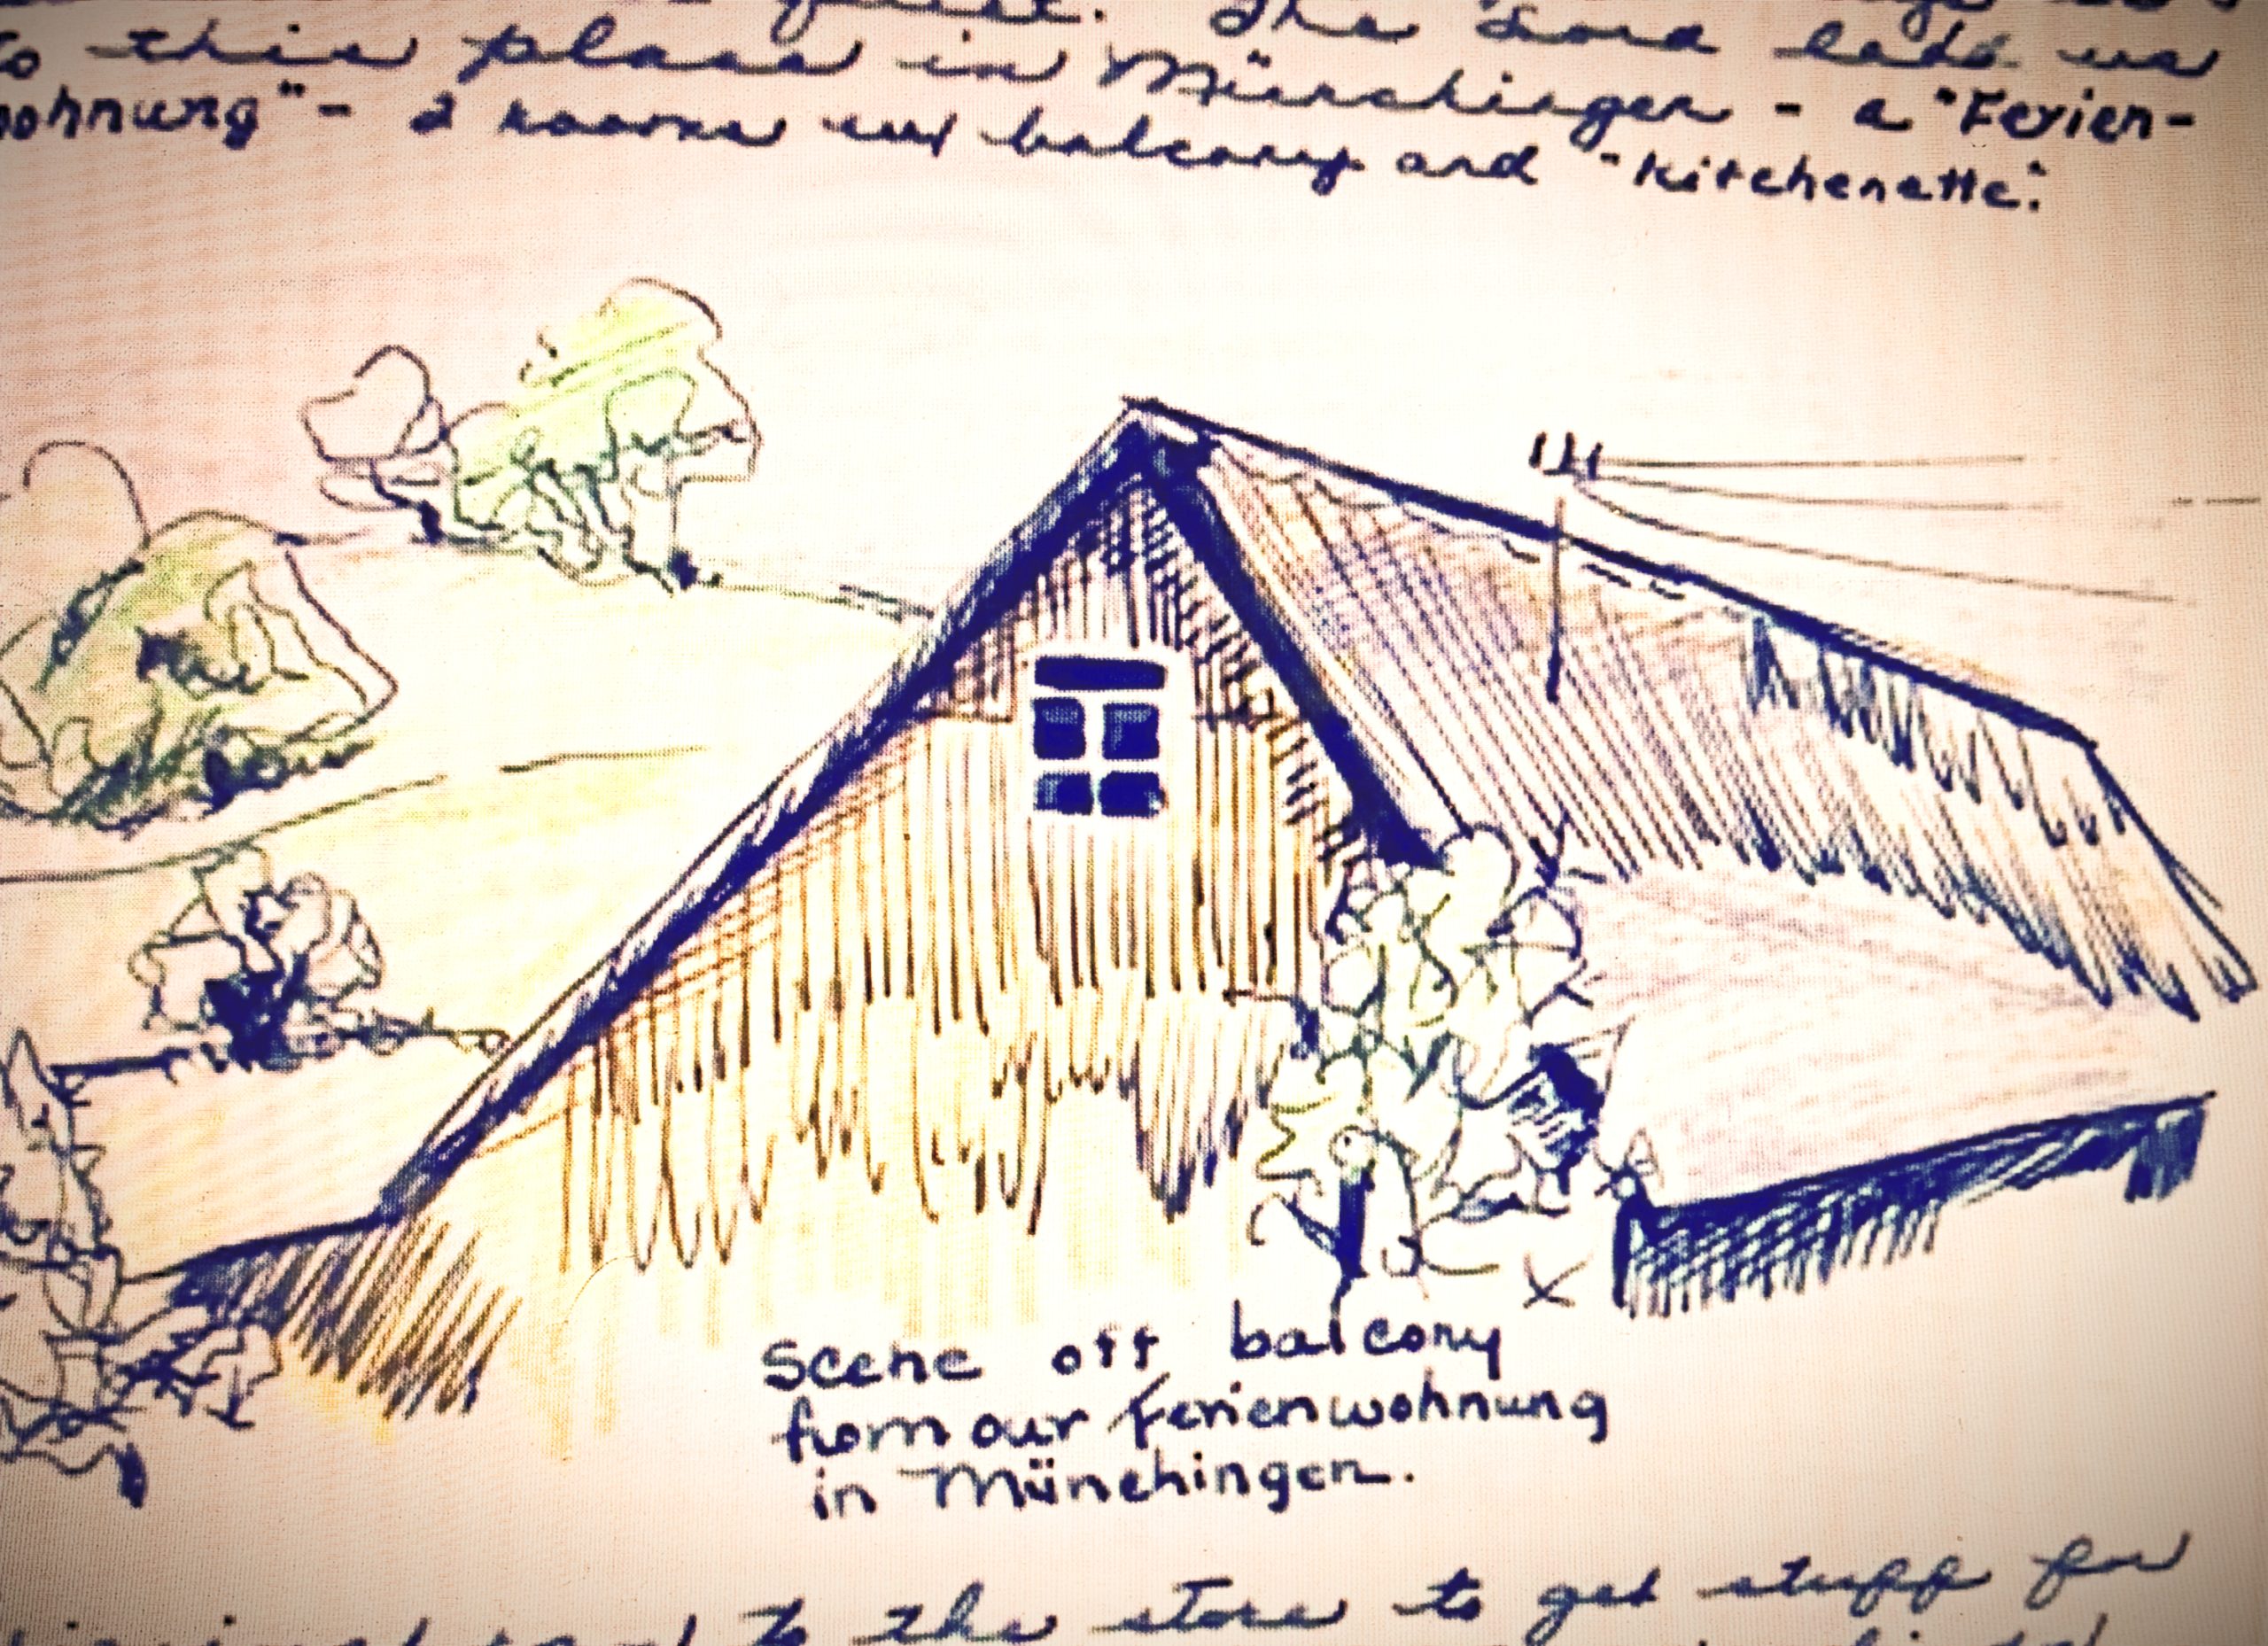 The Lord leads us
to this place in Münchingen - a "Ferien-
wohnung" - 2 rooms w/ balcony and "kitchenette".
Scene off balcony
from our Ferienwohnung
in Münchingen.
to the store to get stuff for